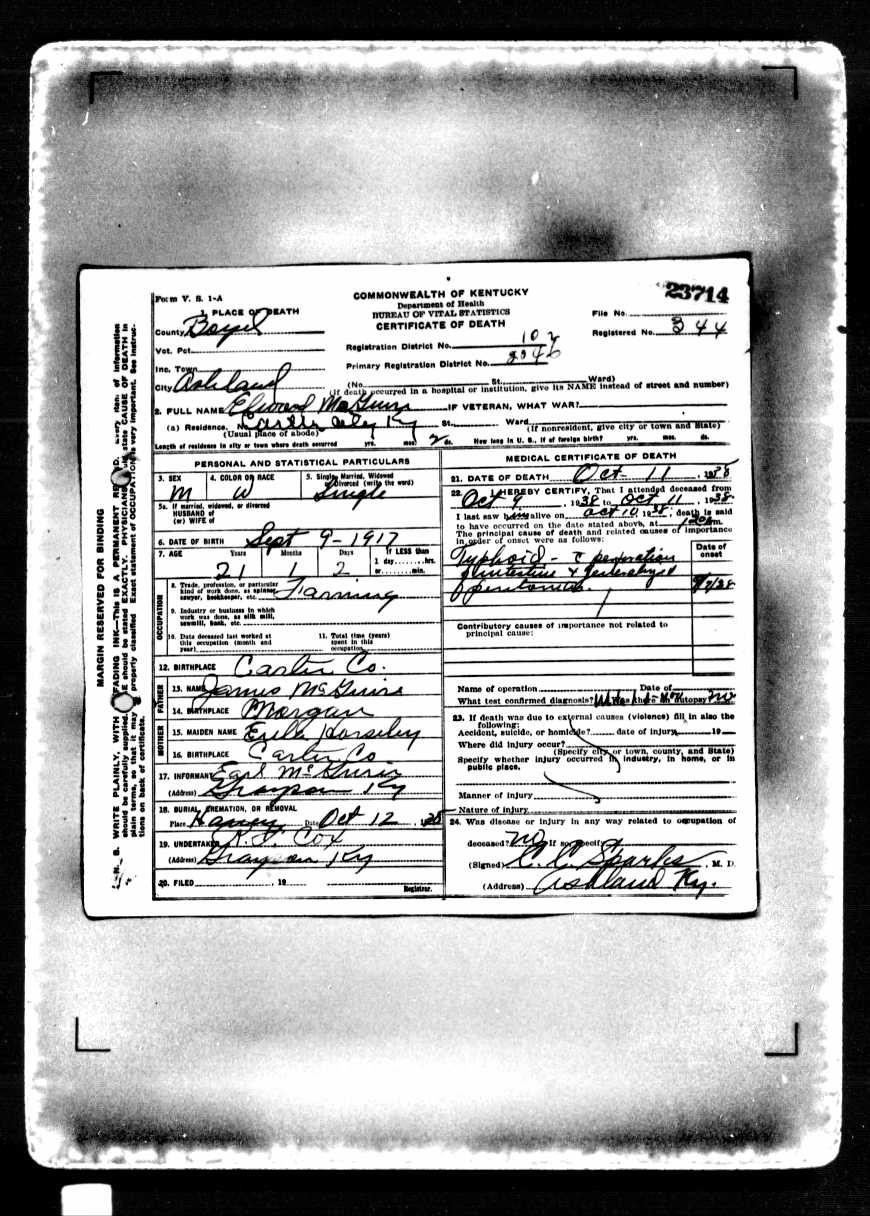 Form V. S. 1-A
COMMONWEALTH OF KENTUCKY
Department of Health
BUREAU OF VITAL STATISTICS
CERTIFICATE OF DEATH
23714
File No.
Registered No. 344
Registration District No. 107
Primary Registration District No.
1. PLACE OF DEATH
County Boyd
Vot. Pct.
Inc. Town
City Ashland
(No. St., Ward)
(If death occurred in a hospital or institution, give its NAME instead of street and number)
2. FULL NAME Edward McGuire IF VETERAN, WHAT WAR?
(a) Residence. Ky St., Ward
(Usual place of abode) (If nonresident, give city or town and State)
Length of residence in city or town where death occurred yrs. mos. 2 ds. How long in U. S., if of foreign birth? yrs. mos. ds.
PERSONAL AND STATISTICAL PARTICULARS
3. SEX M
4. COLOR OR RACE W
5. Single, Married, Widowed or Divorced (write the word) Single
5a. If married, widowed, or divorced
HUSBAND of
(or) WIFE of
6. DATE OF BIRTH Sept 9-1917
7. AGE Years Months Days If LESS than
1 day........hrs.
or........min.
21 1 2
OCCUPATION
8. Trade, profession, or particular
kind of work done, as spinner,
sawyer, bookkeeper, etc. Farming
9. Industry or business in which
work was done, as silk mill,
sawmill, bank, etc.
10. Date deceased last worked at
this occupation (month and
year)
11. Total time (years)
spent in this
occupation
12. BIRTHPLACE Carter Co.
FATHER
13. NAME James McGuire
14. BIRTHPLACE Morgan
MOTHER
15. MAIDEN NAME Horsley
16. BIRTHPLACE Carter Co
17. INFORMANT Earl McGuire
(Address) Grayson Ky
18. BURIAL, CREMATION, OR REMOVAL
Place Date Oct 12, 1938
19. UNDERTAKER Cox
(Address) Grayson Ky
20. FILED 19 Registrar.
MEDICAL CERTIFICATE OF DEATH
21. DATE OF DEATH Oct- 11, 1938
22. I HEREBY CERTIFY, That I attended deceased from
Oct 9, 1938 to Oct 11, 1938
I last saw him alive on Oct 10, 1938, death is said
to have occurred on the date stated above, at m.
The principal cause of death and related causes of importance
in order of onset were as follows:
Date of onset
Typhoid - c perforation
of intestine & generalized
peritonitis. 9/7/38
Contributory causes of importance not related to
principal cause:
Name of operation Date of
What test confirmed diagnosis? Was there an autopsy? No
23. If death was due to external causes (violence) fill in also the
following:
Accident, suicide, or homicide? date of injury 19
Where did injury occur?
(Specify city or town, county, and State)
Specify whether injury occurred in industry, in home, or in
public place.
Manner of injury
Nature of injury
24. Was disease or injury in any way related to occupation of
deceased? No If so, specify
(Signed) C. C. Sparks, M. D.
(Address) Ashland Ky.
MARGIN RESERVED FOR BINDING